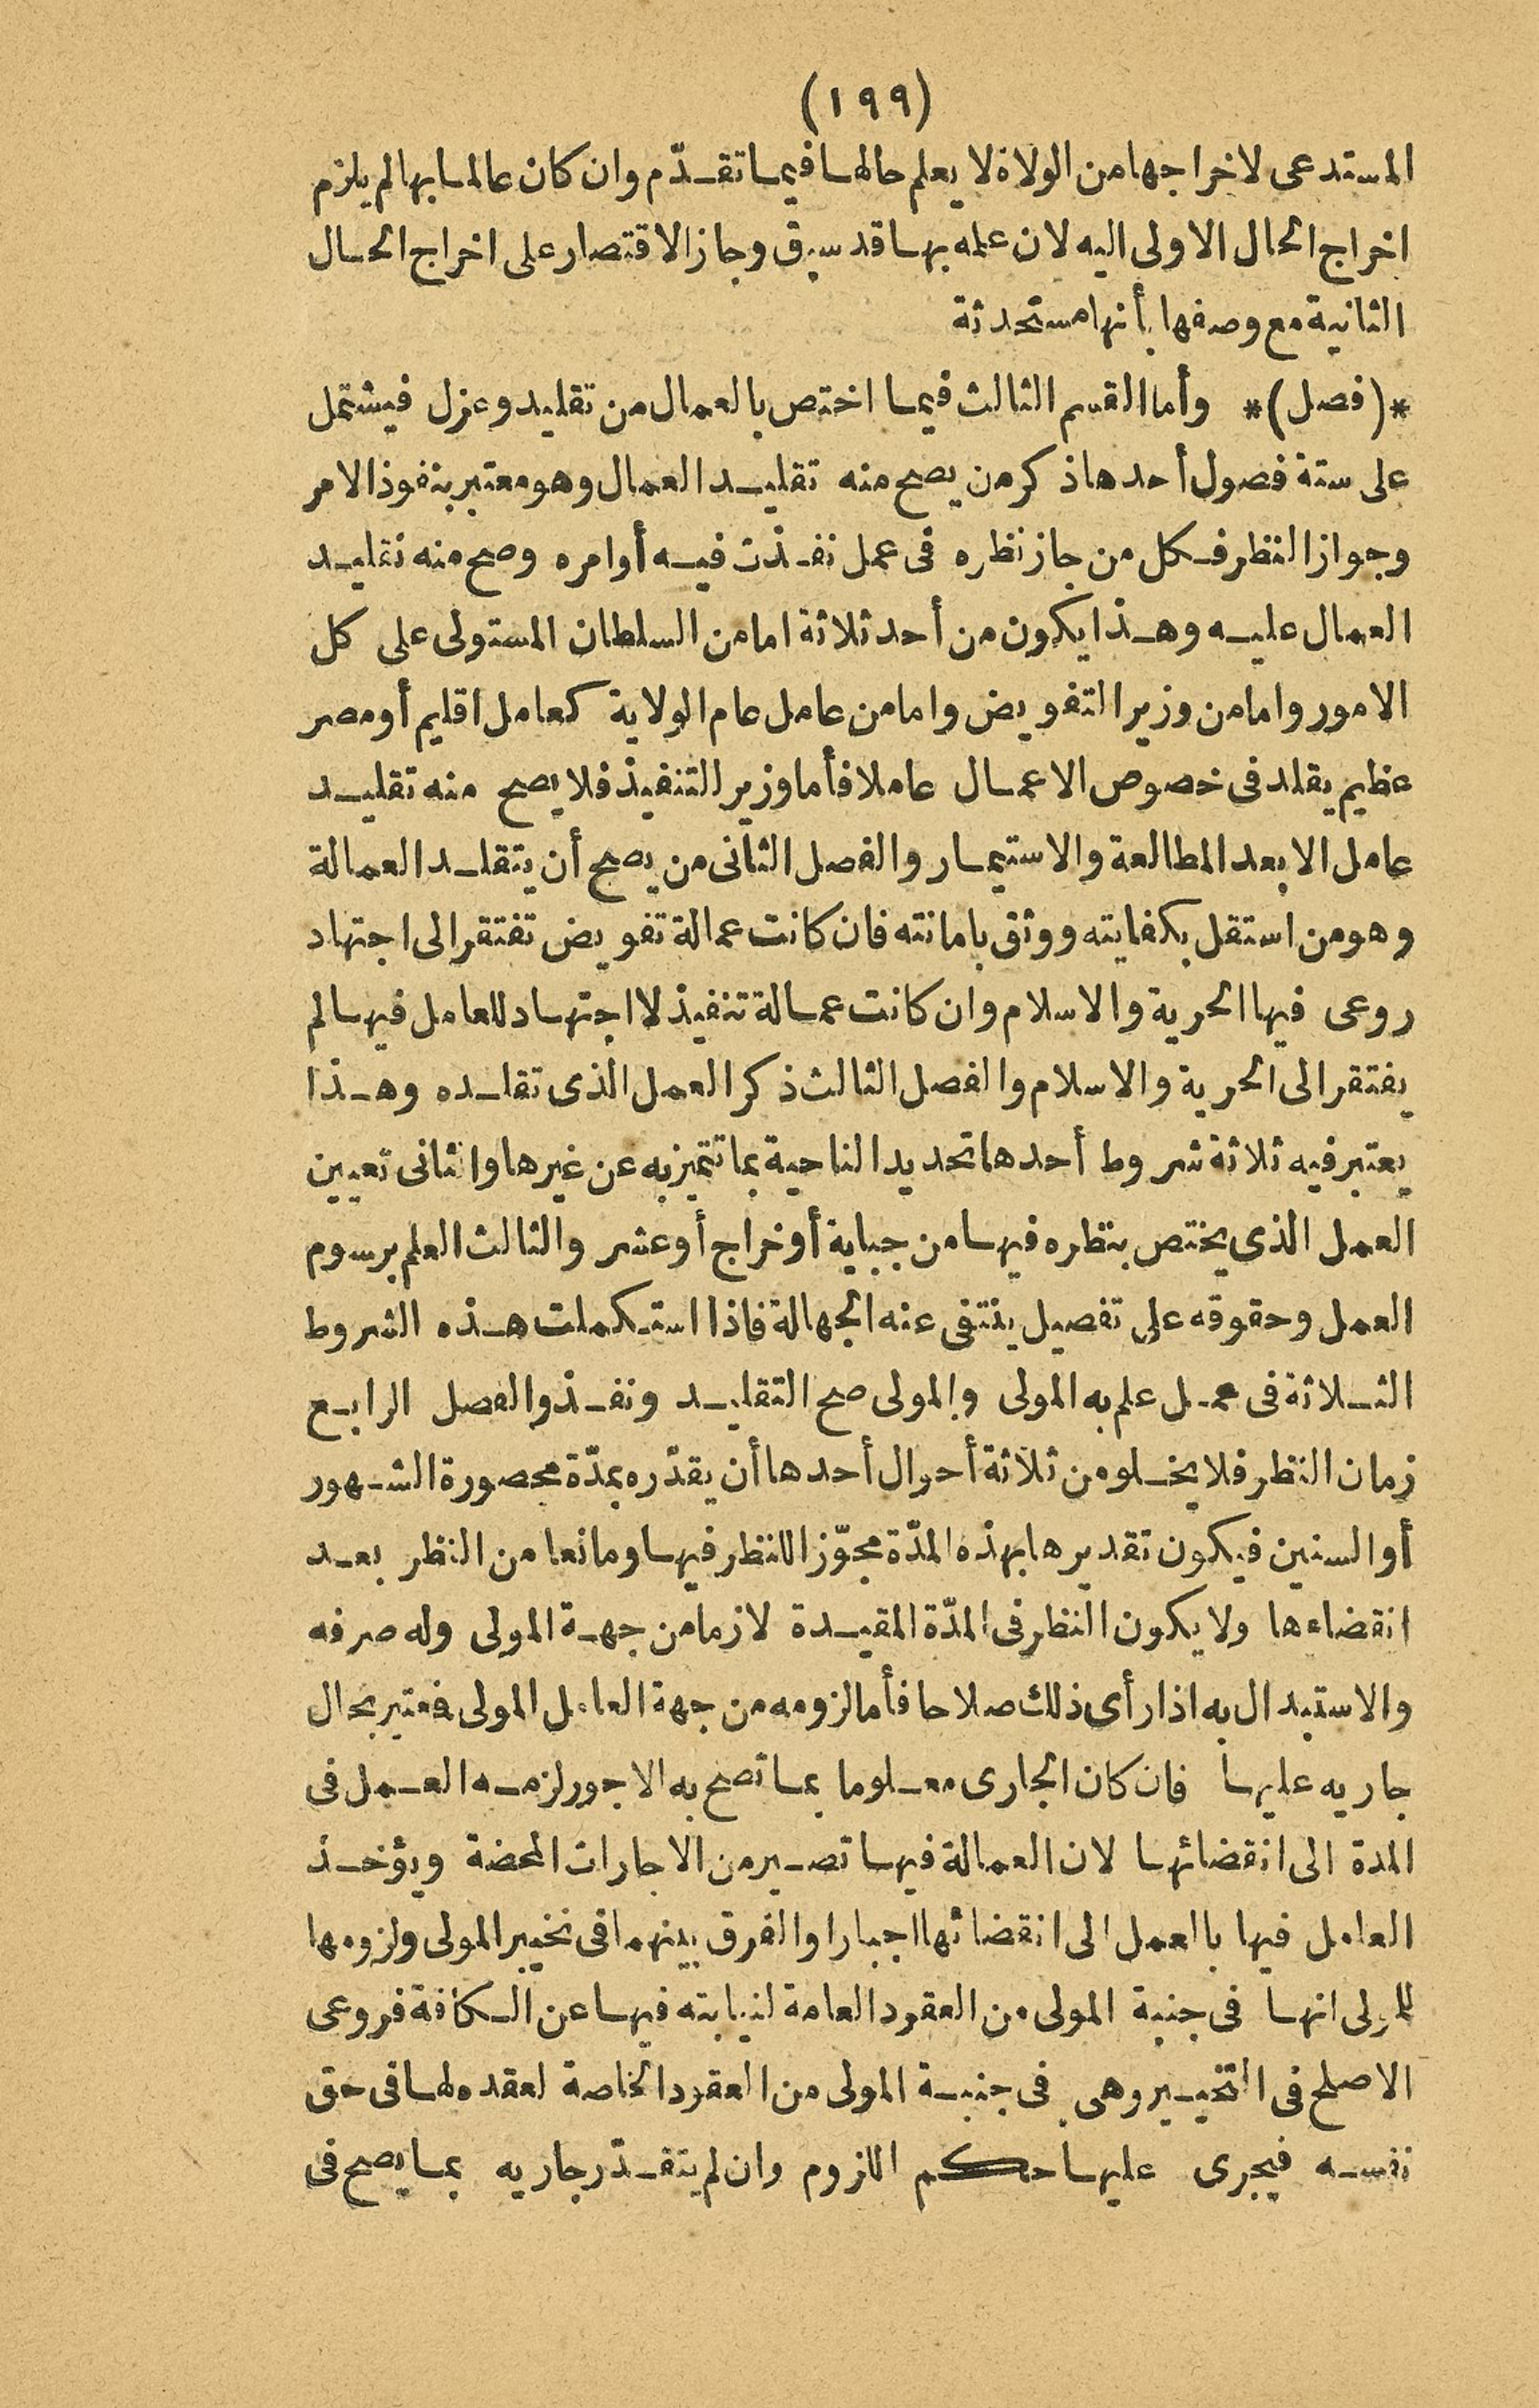 (١٩٩)
المستدعى لاخراجها من الولاة لا يعلم حالها فيما تقدّم وان كان عالما بها لم يلزم
اخراج الحال الاولى اليه لان علمه بها قد سبق وجاز الاقتصار على اخراج الحال
الثانية مع وصفها بأنها مستحدثة
*(فصل)* وأما القسم الثالث فيما اختص بالعمال من تقليد وعزل فيشتمل
على ستة فصول أحدها ذكر من يصح منه تقليد العمال وهو معتبر بنفوذ الامر
وجواز النظر فكل من جاز نظره فى عمل نفذت فيه أوامره وصح منه تقليد
العمال عليه وهذا يكون من أحد ثلاثة اما من السلطان المستولى على كل
الامور واما من وزير التفويض واما من عامل عام الولاية كعامل اقليم أو مصر
عظيم يقلد فى خصوص الاعمال عاملا فأما وزير التنفيذ فلا يصح منه تقليد
عامل الا بعد المطالعة والاستيمار والفصل الثانى من يصح أن يتقلد العمالة
وهو من استقل بكفايته ووثق بامانته فان كانت عمالة تفويض تفتقر الى اجتهاد
روعى فيها الحرية والاسلام وان كانت عمالة تنفيذ لا اجتهاد للعامل فيها لم
يفتقر الى الحرية والاسلام والفصل الثالث ذكر العمل الذى تقلده وهذا
يعتبر فيه ثلاثة شروط أحدها تحديد الناحية بما تتميز به عن غيرها والثانى تعيين
العمل الذى يختص بنظره فيها من جباية أو خراج أو عشر والثالث العلم برسوم
العمل وحقوقه على تفصيل ينتفى عنه الجهالة فاذا استكملت هذه الشروط
الثلاثة فى عمل علم به المولى والمولى صح التقليد ونفذ والفصل الرابع
زمان النظر فلا يخلو من ثلاثة أحوال أحدها أن يقدّره بمدّة محصورة الشهور
أو السنين فيكون تقديرها بهذه المدّة مجوّزا للنظر فيها ومانعا من النظر بعد
انقضاءها ولا يكون النظر فى المدّة المقيدة لازما من جهة المولى وله صرفه
والاستبدال به اذا رأى ذلك صلاحا فأما لزومه من جهة العامل المولى فمعتبر بحال
جاريه عليها فان كان الجارى معلوما بما تصح به الاجور لزمه العمل فى
المدة الى انقضائها لان العمالة فيها تصير من الاجارات المحضة ويؤخذ
العامل فيها بالعمل الى انقضائها اجبارا والفرق بينهما فى تخيير المولى ولزومها
للمولى انها فى جنبة المولى من العقود العامة لنيابته فيها عن الكافة فروعى
الاصلح فى التخيير وهى فى جنبة المولى من العقود الخاصة لعقده لها فى حق
نفسه فيجرى عليها حكم اللزوم وان لم يتقدّر جاريه بما يصح فى